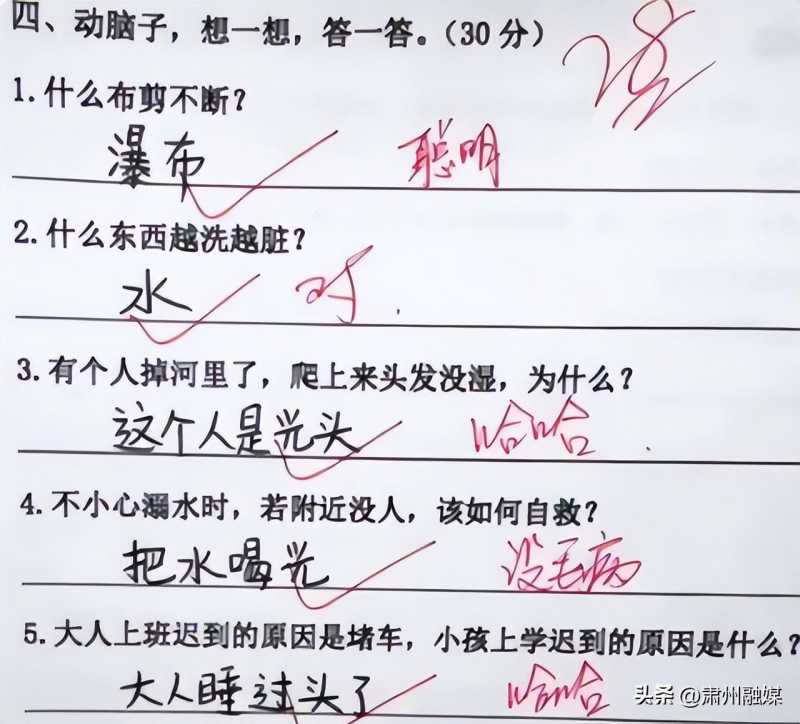 四、动脑子，想一想，答一答。（30 分）
1. 什么布剪不断？
瀑布 聪明
2. 什么东西越洗越脏？
水 对
3. 有个人掉河里了，爬上来头发没湿，为什么？
这个人是光头 哈哈
4. 不小心溺水时，若附近没人，该如何自救？
把水喝光 没毛病
5. 大人上班迟到的原因是堵车，小孩上学迟到的原因是什么？
大人睡过头了 哈哈
头条 @肃州融媒